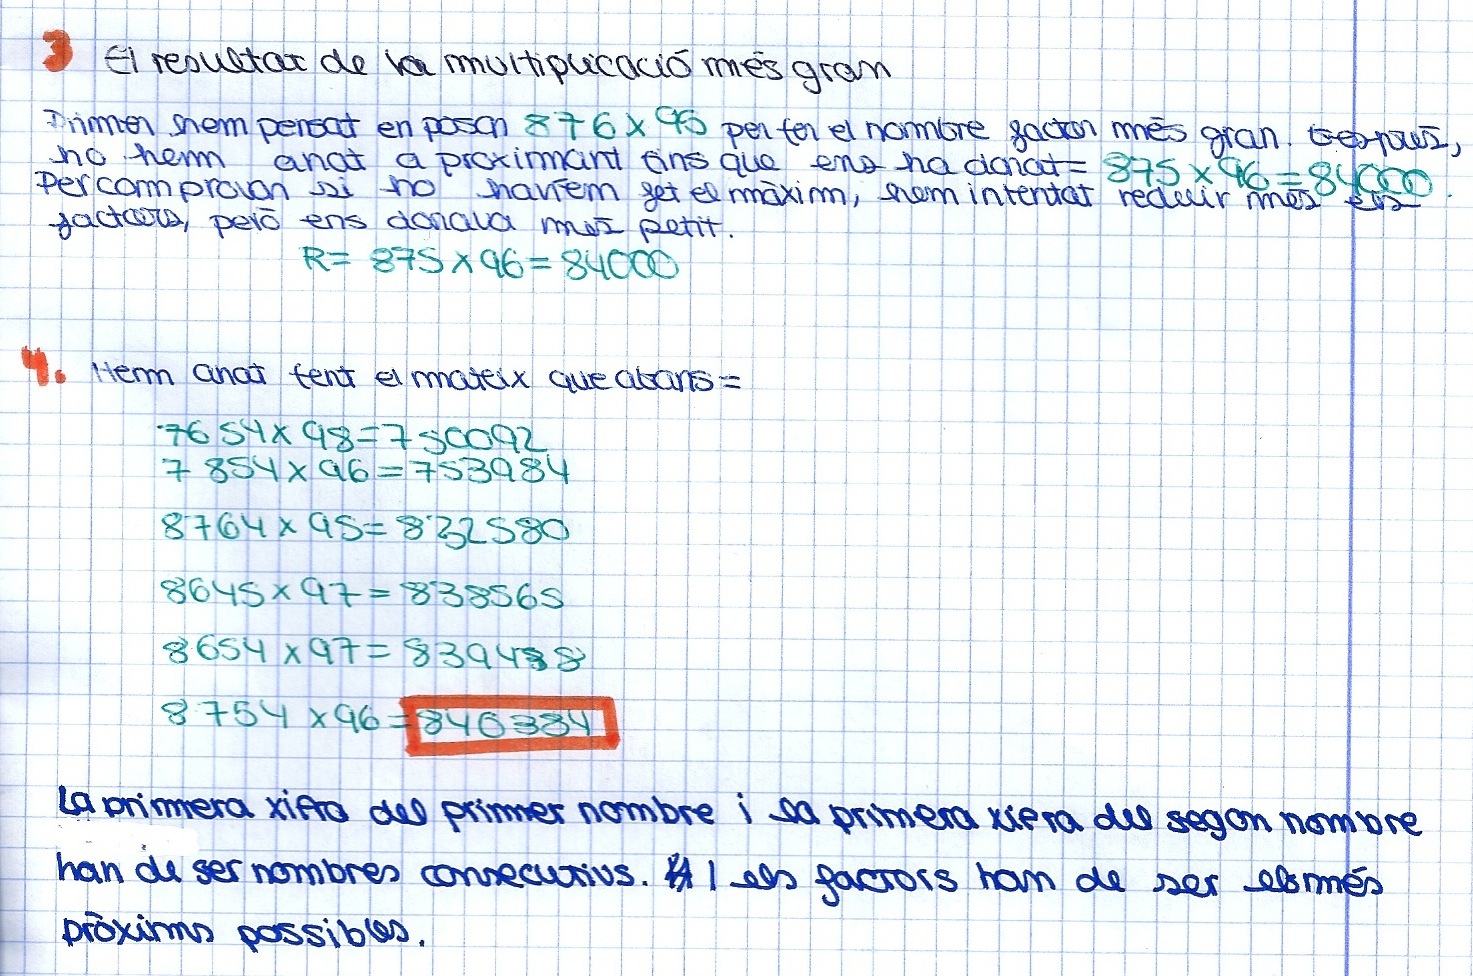 3 El resultat de la multiplicació més gran
Primer hem pensat en posar 876 x 95 per fer el nombre factor més gran. Després,
ho hem anat aproximant fins que ens ha donat = 875 x 96 = 84000.
Per comprovar si ho havíem fet el màxim, hem intentat reduir més els
factors, però ens donava més petit.
R = 875 x 96 = 84000
4. Hem anat fent el mateix que abans =
7654 x 98 = 750092
7854 x 96 = 753984
8764 x 95 = 832580
8645 x 97 = 838565
8654 x 97 = 839438
8754 x 96 = 840384
La primera xifra del primer nombre i la primera xifra del segon nombre
han de ser nombres consecutius. I els factors han de ser els més
pròxims possibles.